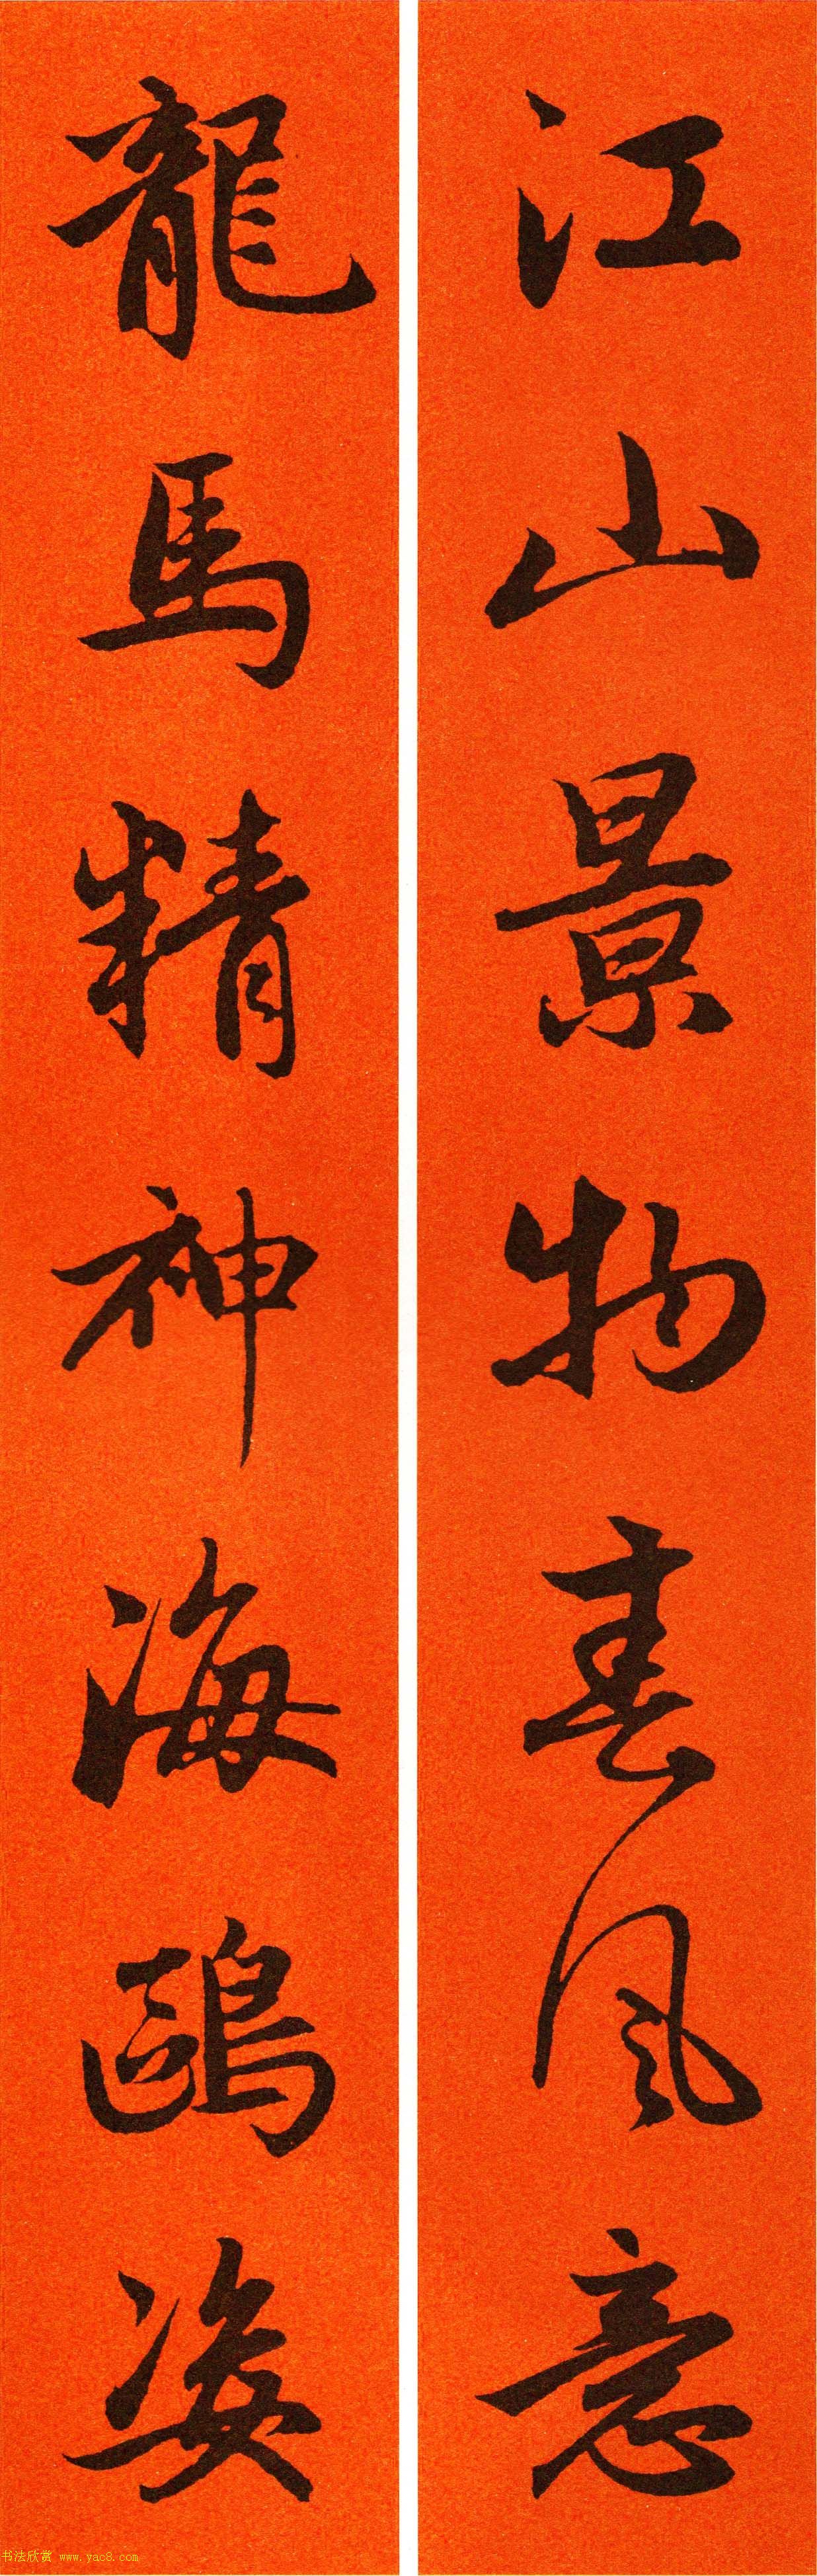 江山景物春風意
龍馬精神海鷗姿
书法欣赏 www.yac8.com